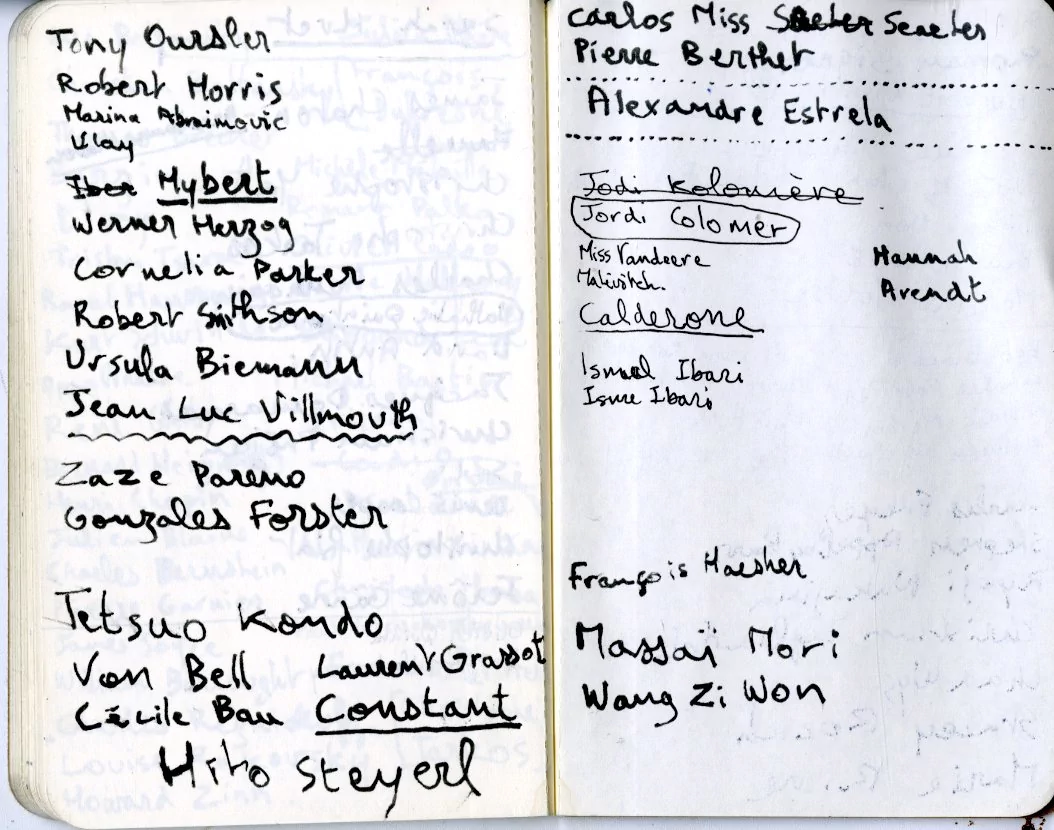 Tony Oursler
Robert Morris
Marina Abraimovic
Ulay
Iber Hybert
Werner Herzog
Cornelia Parker
Robert Smithson
Ursula Biemann
Jean Luc Villmouth
Zaze Pareno
Gonzales Forster
Tetsuo Kondo
Van Bell Laurent Grassot
Cécile Bau Constant
Hito Steyerl
Carlos Miss Seaeter
Pierre Berthet
Alexandre Estrela
Jodi Kolomière
Jordi Colomer
Miss Vandeere
Malivitch.
Calderone
Hannah
Arendt
Ismael Ibari
Isme Ibari
François Haesher
Massai Mori
Wang Zi Won